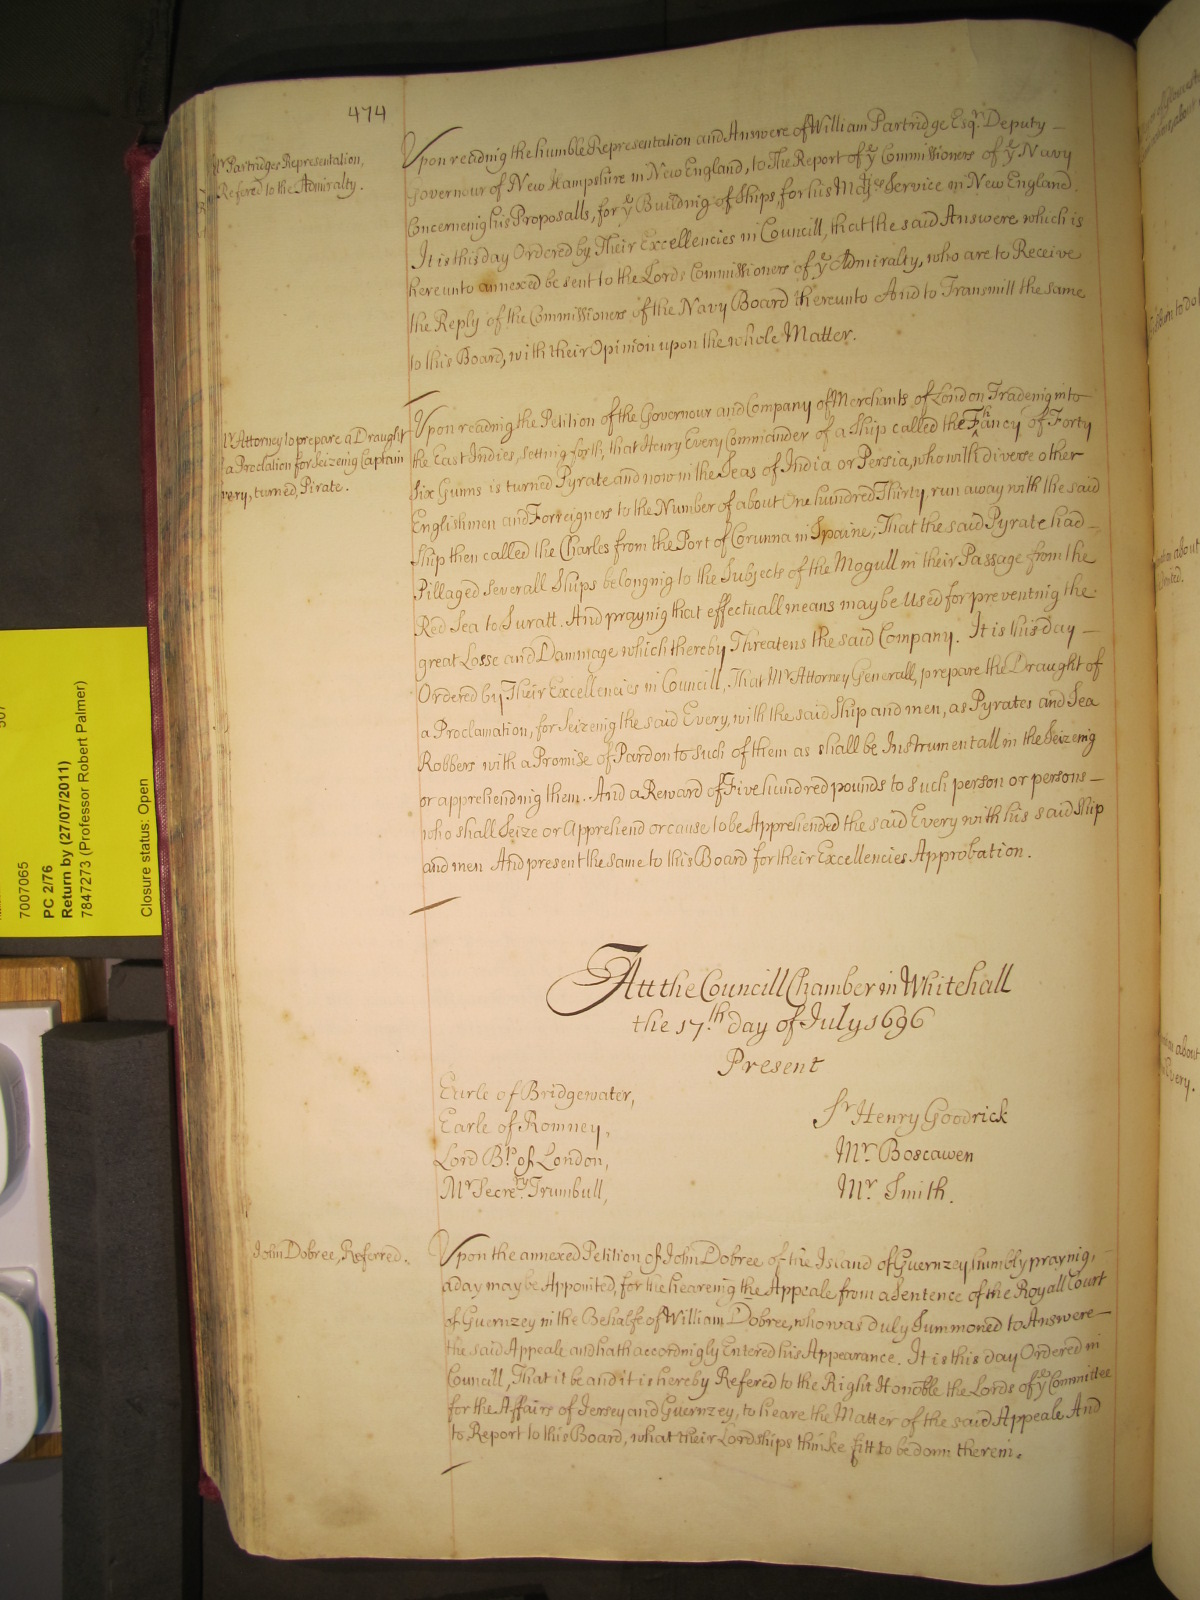 474
Mr Partridges Representation,
Refered to the Admiralty.
Upon reading the humble Representation and Answere of William Partridge Esqr. Deputy
Governour of New Hampshire in New England, to The Report of ye Commissioners of ye Navy
Concerneing his Proposalls, for ye Building of Ships, for his Majties Service in New England.
It is this day Ordered by Their Excellencies in Councill, that the said Answere which is
hereunto annexed be sent to the Lords Commissioners of ye Admiralty, who are to Receive
the Reply of the Commissioners of the Navy Board thereunto And to Transmitt the same
to this Board, with their Opinion upon the whole Matter.
Mr Attorney to prepare a Draught
a Proclation for Seizeing Captain
Every, turned, Pirate.
Upon reading the Petition of the Governour and Company of Merchants of London Tradeing into
the East Indies, setting forth, that Henry Every Commander of a Ship called the Phancy of Forty
Six Gunns is turned Pyrate and now in the Seas of India or Persia, who with diverse other
Englishmen and Forreigners to the Number of about One hundred Thirty, run away with the said
Ship then called the Charles from the Port of Corunna in Spaine; That the said Pyrate had
Pillaged Severall Ships belonging to the Subjects of the Mogull in their Passage from the
Red Sea to Suratt. And praying that effectuall means may be Used for preventing the
great Losse and Dammage which thereby Threatens the said Company. It is this day
Ordered by Their Excellencies in Councill, That Mr Attorney Generall, prepare the Draught of
a Proclamation, for Seizeing the said Every, with the said Ship and men, as Pyrates and Sea
Robbers with a Promise of Pardon to such of them as shall be Instrumentall in the Seizeing
or apprehending them. And a Reward of Five hundred pounds to such person or persons
who shall Seize or Apprehend or cause to be Apprehended the said Every with his said Ship
and men And present the same to this Board for their Excellencies Approbation.
Att the Councill Chamber in Whitehall
the 17th. day of July 1696
Present
Earle of Bridgewater,
Earle of Romney,
Lord Bp. of London,
Mr Secrety. Trumbull,
Sr Henry Goodrick
Mr. Boscawen
Mr. Smith.
John Dobree, Referred.
Upon the annexed Petition of John Dobree of the Island of Guernzey humbly praying,
a day may be Appointed, for the heareing the Appeale from a Sentence of the Royall Court
of Guernzey in the Behalfe of William Dobree, who was duly Summoned to Answere
the said Appeale and hath accordingly Entered his Appearance. It is this day Ordered in
Councill, That it be and it is hereby Refered to the Right Honoble the Lords of ye Committee
for the Affairs of Jersey and Guernzey, to heare the Matter of the said Appeale And
to Report to this Board, what their Lordships thinke fitt to be donn therein.
7007065
PC 2/76
Return by (27/07/2011)
7847273 (Professor Robert Palmer)
Closure status: Open